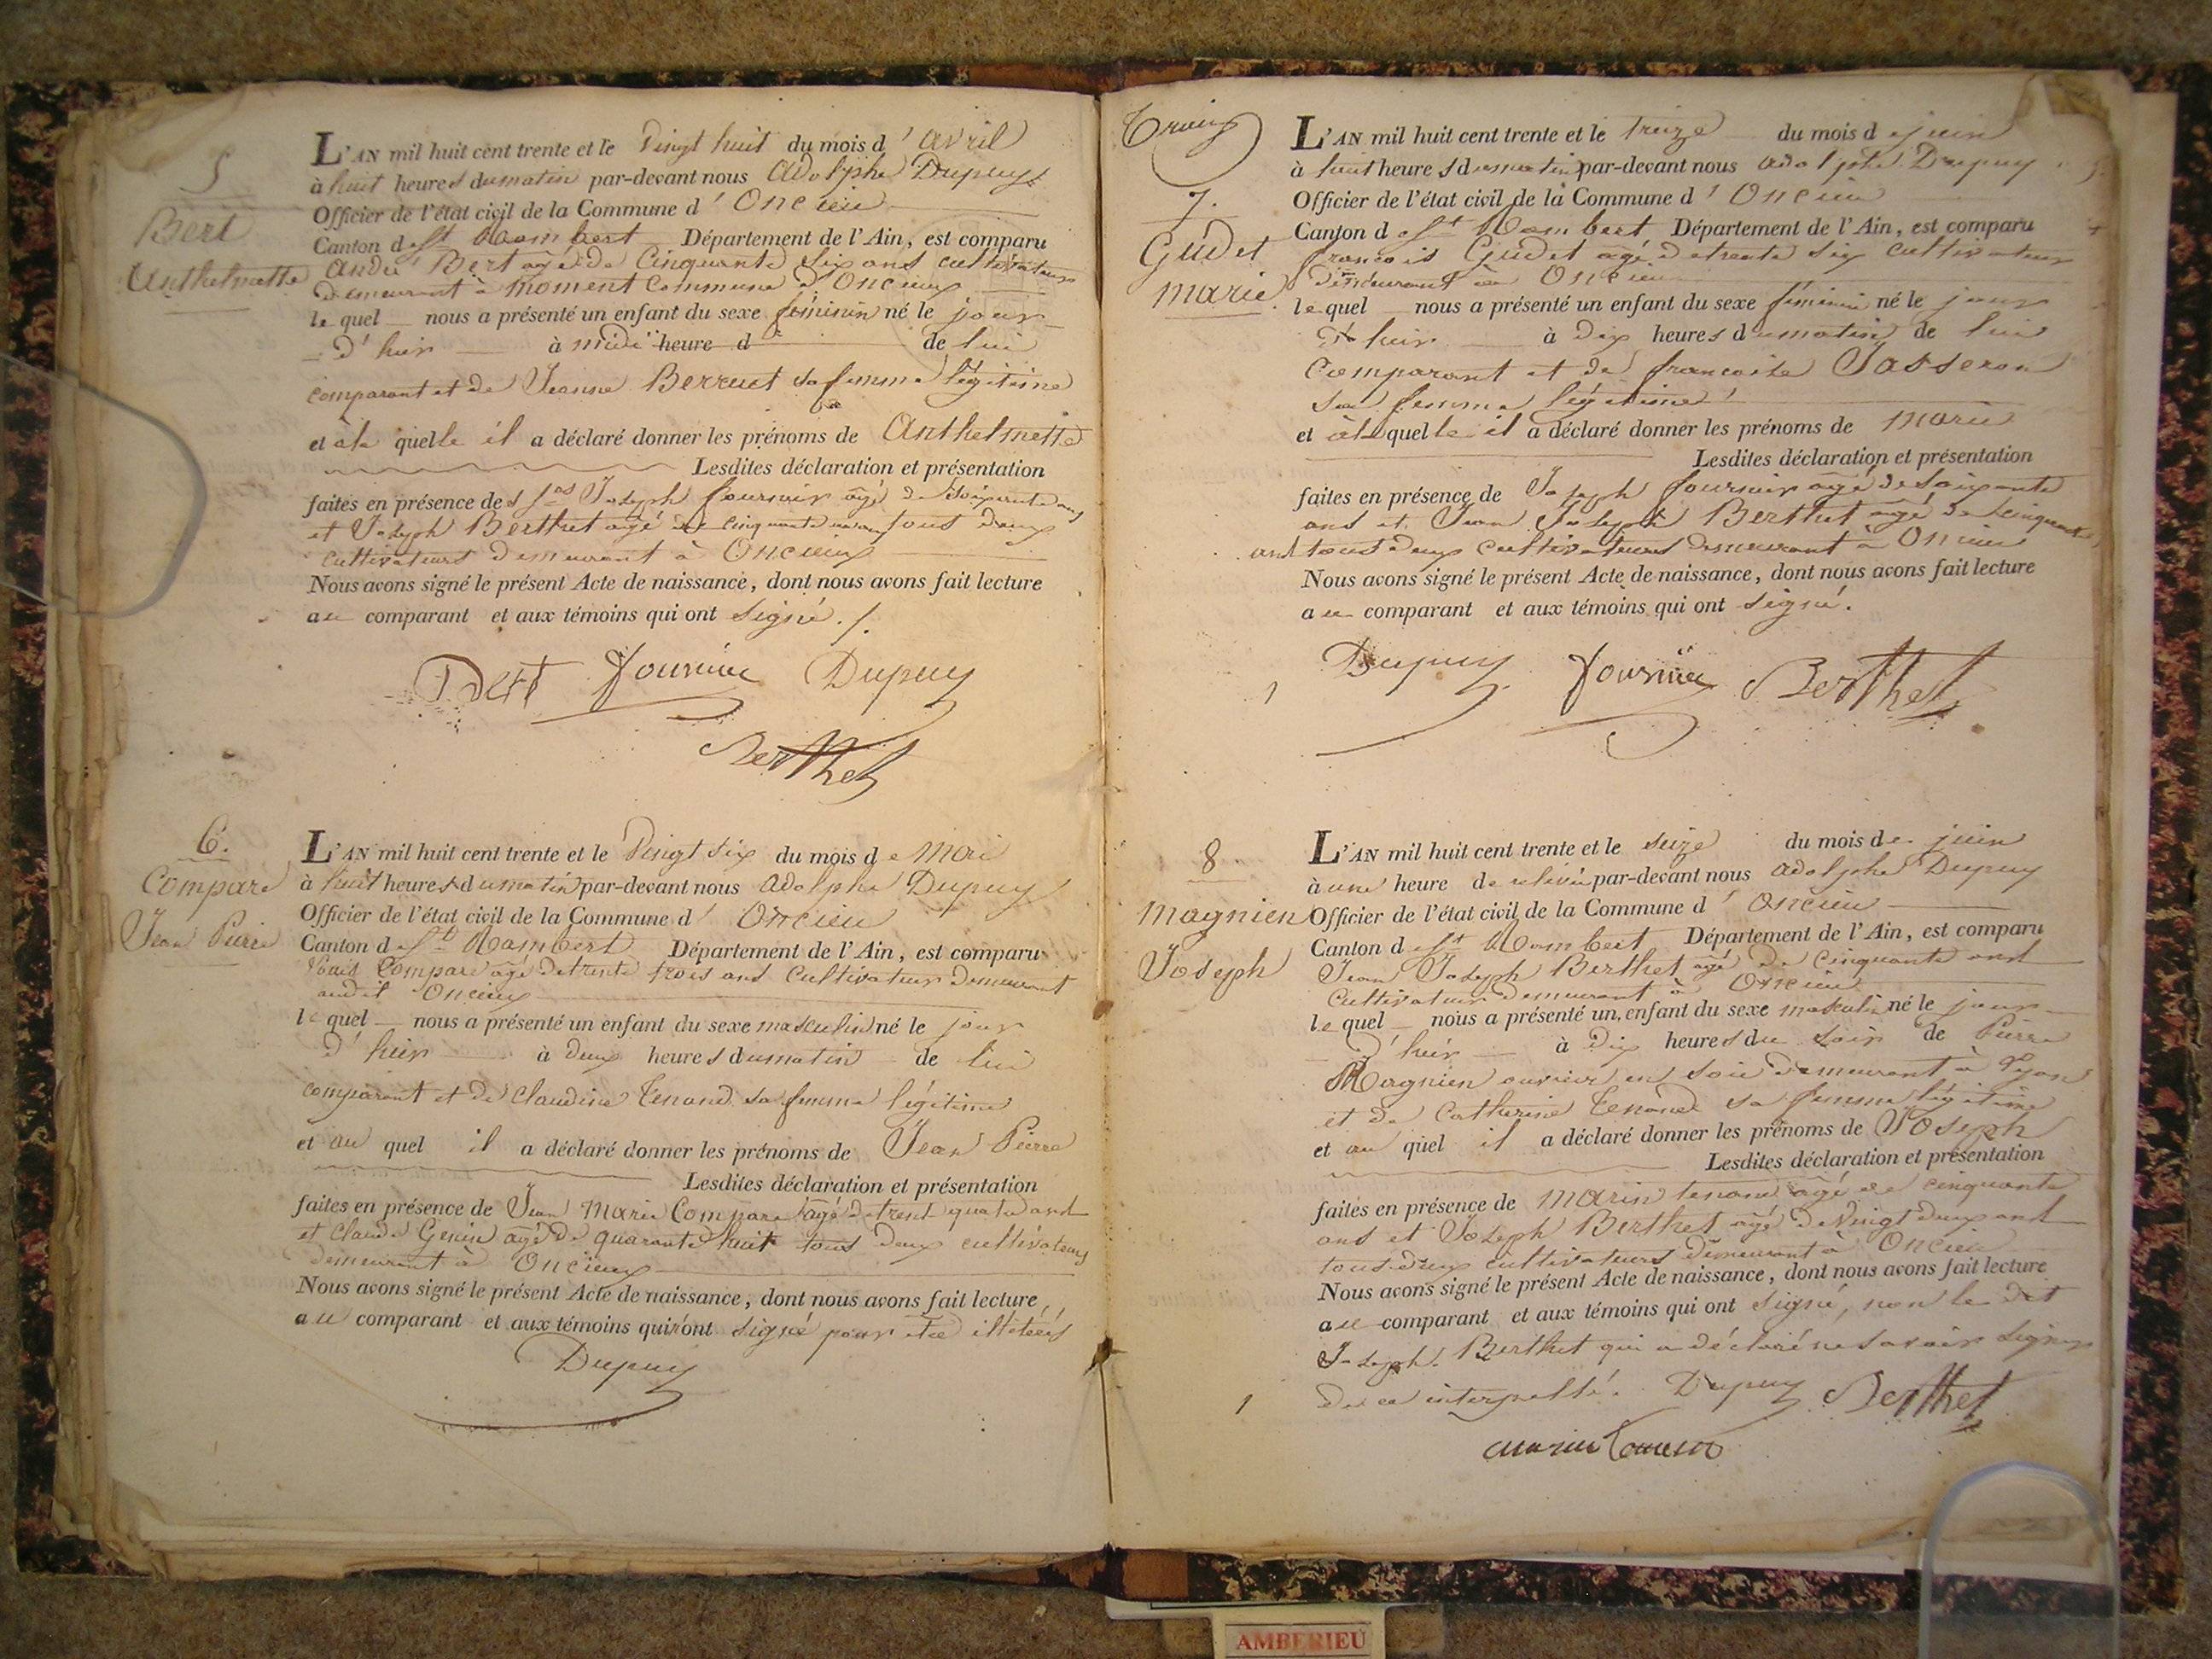 5
Bert
Anthelmette
L'AN mil huit cent trente et le Vingt huit du mois d'avril
à huit heures du matin par-devant nous Adolphe Dupuy
Officier de l'état civil de la Commune d'Oncieu
Canton de St Rambert Département de l'Ain, est comparu
André Bert âgé de Cinquante six ans cultivateur
demeurant à moment commune d'Oncieux
le quel nous a présenté un enfant du sexe féminin né le jour
d'hier à midi heure d de lui
comparant et de Jeanne Berruet sa femme légitime
et à la quelle il a déclaré donner les prénoms de Anthelmette
Lesdites déclaration et présentation
faites en présence des Joseph fournier âgé de soixante ans
et Joseph Berthet âgé de cinquante tous deux
cultivateurs demeurant à Oncieux
Nous avons signé le présent Acte de naissance, dont nous avons fait lecture
au comparant et aux témoins qui ont signé ./.
Bert fournier Dupuy
Berthet
6.
Compare
Jean Pierre
L'AN mil huit cent trente et le Vingt six du mois de Mai
à huit heures du matin par-devant nous Adolphe Dupuy
Officier de l'état civil de la Commune d'Oncieu
Canton de St Rambert Département de l'Ain, est comparu
Compare âgé de trente trois ans cultivateur demeurant
audit Oncieux
le quel nous a présenté un enfant du sexe masculin né le jour
d'hier à deux heures du matin de lui
comparant et de Claudine Tenand sa femme légitime
et au quel il a déclaré donner les prénoms de Jean Pierre
Lesdites déclaration et présentation
faites en présence de Jean Marie Compare âgé de trent quatre ans
et Claude Genin âgé de quarante huit tous deux cultivateurs
demeurant à Oncieux
Nous avons signé le présent Acte de naissance, dont nous avons fait lecture
au comparant et aux témoins qui n'ont signé pour être illitérés
Dupuy
7.
Gudet
marie
L'AN mil huit cent trente et le treize du mois de juin
à huit heures du matin par-devant nous adolphe Dupuy
Officier de l'état civil de la Commune d'Oncieu
Canton de St Rambert Département de l'Ain, est comparu
francois Gudet âgé de trente six cultivateur
demeurant à Oncieu
le quel nous a présenté un enfant du sexe féminin né le jour
d'hier à dix heures du matin de lui
comparant et de francoise Jasseron
sa femme légitime
et à la quelle il a déclaré donner les prénoms de marie
Lesdites déclaration et présentation
faites en présence de Joseph fournier âgé de soixante
ans et Jean Joseph Berthet âgé de cinquante
ans tous deux cultivateurs demeurant à Oncieu
Nous avons signé le présent Acte de naissance, dont nous avons fait lecture
au comparant et aux témoins qui ont signé.
Dupuy fournier Berthet
8
magnien
Joseph
L'AN mil huit cent trente et le seize du mois de juin
à une heure de relevée par-devant nous adolphe Dupuy
Officier de l'état civil de la Commune d'Oncieu
Canton de St Rambert Département de l'Ain, est comparu
Jean Joseph Berthet âgé de cinquante ans
cultivateur demeurant à Oncieu
le quel nous a présenté un enfant du sexe masculin né le jour
d'hier à dix heures du soir de Pierre
Magnien ouvrier en soie demeurant à Lyon
et de Catherine Tenand sa femme légitime
et au quel il a déclaré donner les prénoms de Joseph
Lesdites déclaration et présentation
faites en présence de marin tenand âgé de cinquante
ans et Joseph Berthet âgé de vingt deux ans
tous deux cultivateurs demeurant à Oncieu
Nous avons signé le présent Acte de naissance, dont nous avons fait lecture
au comparant et aux témoins qui ont signé, non le dit
Joseph Berthet qui a déclaré ne savoir signer
de ce interpellé. Dupuy Berthet
AMBERIEU